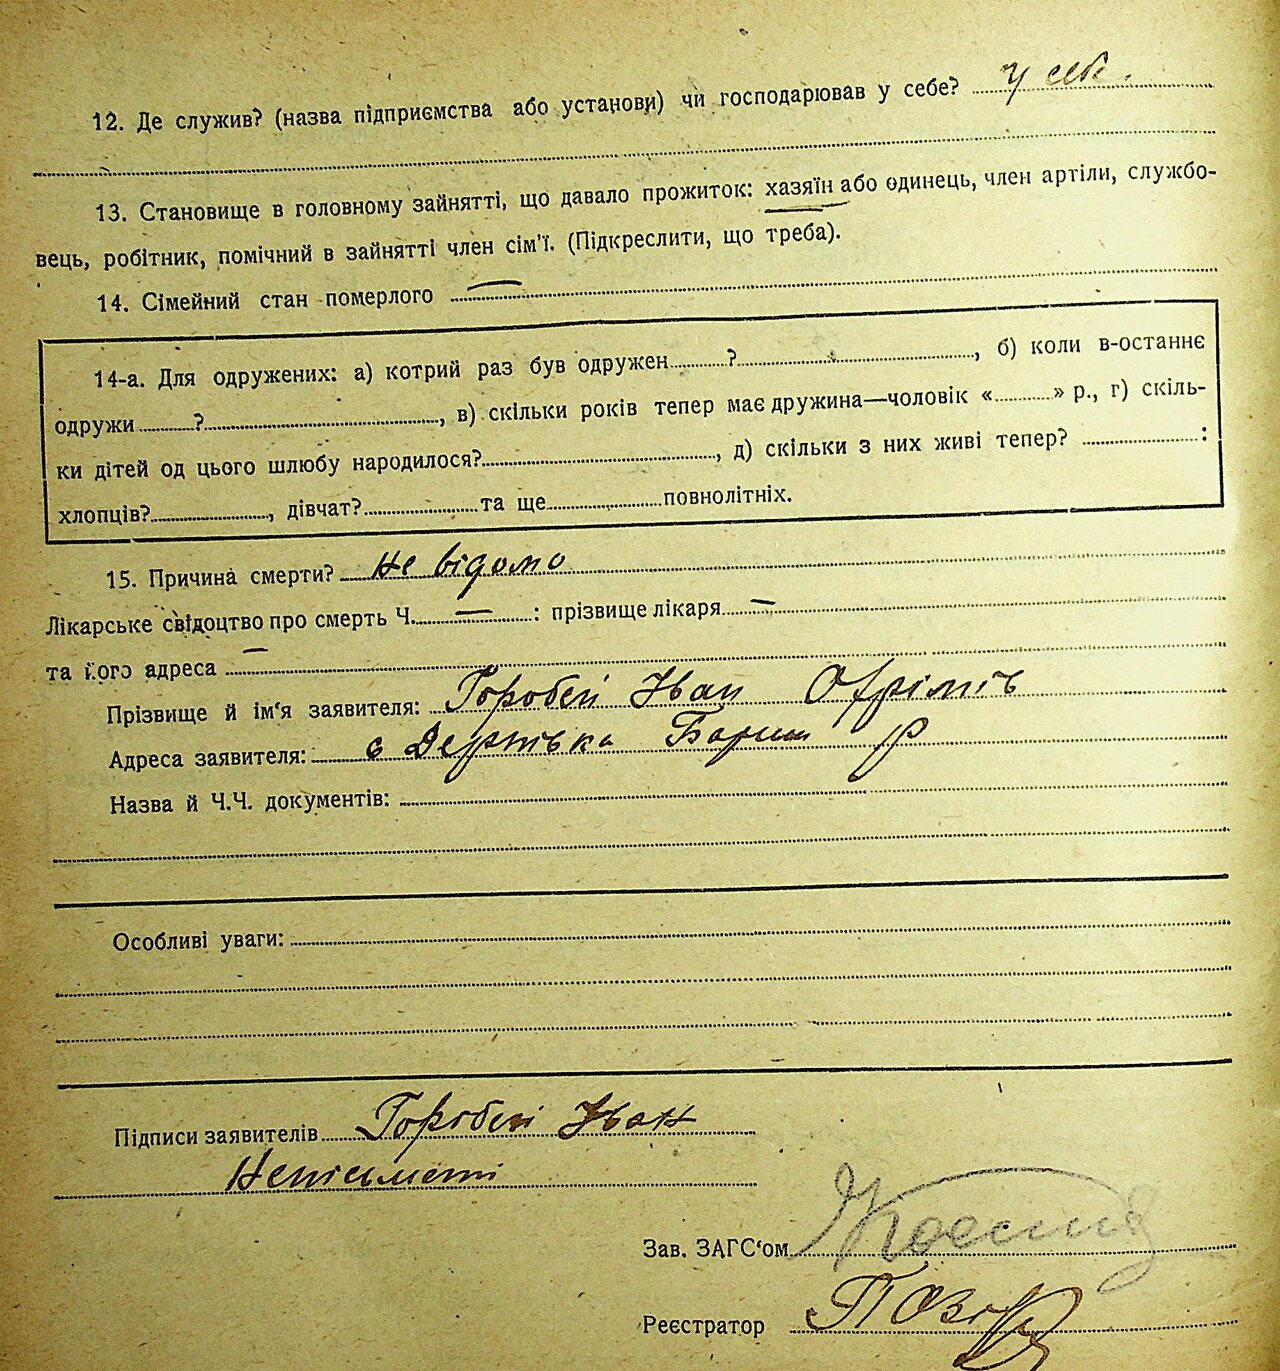 12. Де служив? (назва підприємства або установи) чи господарював у себе? у себе
13. Становище в головному зайнятті, що давало прожиток: хазяїн або одинець, член артіли, службо-
вець, робітник, помічний в зайнятті член сім'ї. (Підкреслити, що треба).
14. Сімейний стан померлого —
14-а. Для одружених: а) котрий раз був одружен ? , б) коли в-останнє
одружи ? , в) скільки років тепер має дружина—чоловік « » р., г) скіль-
ки дітей од цього шлюбу народилося? , д) скільки з них живі тепер? :
хлопців? , дівчат? та ще повнолітніх.
15. Причина смерти? Не відомо
Лікарське свідоцтво про смерть Ч. — : прізвище лікаря —
та його адреса —
Прізвище й ім'я заявителя: Горобей Іван
Адреса заявителя: с
Назва й Ч.Ч. документів:
Особливі уваги:
Підписи заявителів Горобей Іван
Неписьмені
Зав. ЗАГС'ом
Реєстратор